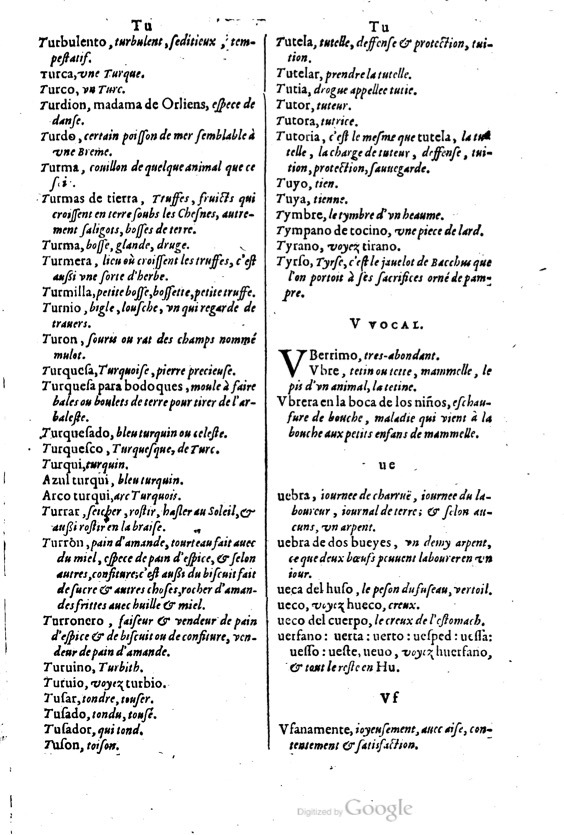 Tu
Turbulento, turbulent, ſeditieux, tem-
peſtatif.
Turca, vne Turque.
Turco, vn Turc.
Turdion, madama de Orliens, eſpece de
danſe.
Turdo, certain poiſſon de mer ſemblable à
vne Breme.
Turma, couillon de quelque animal que ce
Turmas de tierra, Truffes, fruicts qui
croiſſent en terre ſoubs les Cheſnes, autre-
ment ſaligots, boſſes de terre.
Turma, boſſe, glande, druge.
Turmera, lieu où croiſſent les truffes, c'eſt
auſſi vne ſorte d'herbe.
Turmilla, petite boſſe, boſſette, petite truffe.
Turnio, bigle, louſche, vn qui regarde de
trauers.
Turon, ſouris ou rat des champs nommé
mulot.
Turqueſa, Turquoiſe, pierre precieuſe.
Turqueſa para bodoques, moule à faire
bales ou boulets de terre pour tirer de l'ar-
baleſte.
Turqueſado, bleu turquin ou celeſte.
Turqueſco, Turqueſque, de Turc.
Turqui, turquin.
Azul turqui, bleu turquin.
Arco turqui, arc Turquois.
Turrar, ſeicher, roſtir, haſler au Soleil, &
auſſi roſtir en la braiſe.
Turròn, pain d'amande, tourteau fait auec
du miel, eſpece de pain d'eſpice, & ſelon
autres, confiture; c'eſt auſſi du biſcuit fait
de ſucre & autres choſes, rocher d'aman-
des frittes auec huille & miel.
Turronero, faiſeur & vendeur de pain
d'eſpice & de biſcuit ou de confiture, ven-
deur de pain d'amande.
Turuino, Turbith.
Turuio, voyez turbio.
Tuſar, tondre, touſer.
Tuſado, tondu, touſé.
Tuſador, qui tond.
Tuſon, toiſon.
Tu
Tutela, tutelle, deffenſe & protection, tui-
tion.
Tutelar, prendre la tutelle.
Tutia, drogue appellee tutie.
Tutor, tuteur.
Tutora, tutrice.
Tutoria, c'eſt le meſme que tutela, la tu
telle, la charge de tuteur, deffenſe, tui-
tion, protection, ſauuegarde.
Tuyo, tien.
Tuya, tienne.
Tymbre, le tymbre d'vn heaume.
Tympano de tocino, vne piece de lard.
Tyrano, voyez tirano.
Tyrſo, Tyrſe, c'eſt le jauelot de Bacchus que
l'on portoit à ſes ſacrifices orné de pam-
pre.
V VOCAL.
VBerrimo, tres-abondant.
Vbre, tetin ou tette, mammelle, le
pis d'vn animal, la tetine.
Vbrera en la boca de los niños, eſchau-
fure de bouche, maladie qui vient à la
bouche aux petits enfans de mammelle.
ue
uebra, iournee de charruë, iournee du la-
boureur, iournal de terre; & ſelon au-
cuns, vn arpent.
uebra de dos bueyes, vn demy arpent,
ce que deux bœufs peuuent labourer en vn
iour.
ueca del huſo, le peſon du fuſeau, vertoil.
ueco, voyez hueco, creux.
ueco del cuerpo, le creux de l'eſtomach.
uerfano: uerta: uerto: ueſped: ueſſa:
ueſſo: ueſte, ueuo, voyez huerfano,
& tout le reſte en Hu.
Vf
Vfanamente, ioyeuſement, auec aiſe, con-
tentement & ſatisfaction.
Digitized by Google